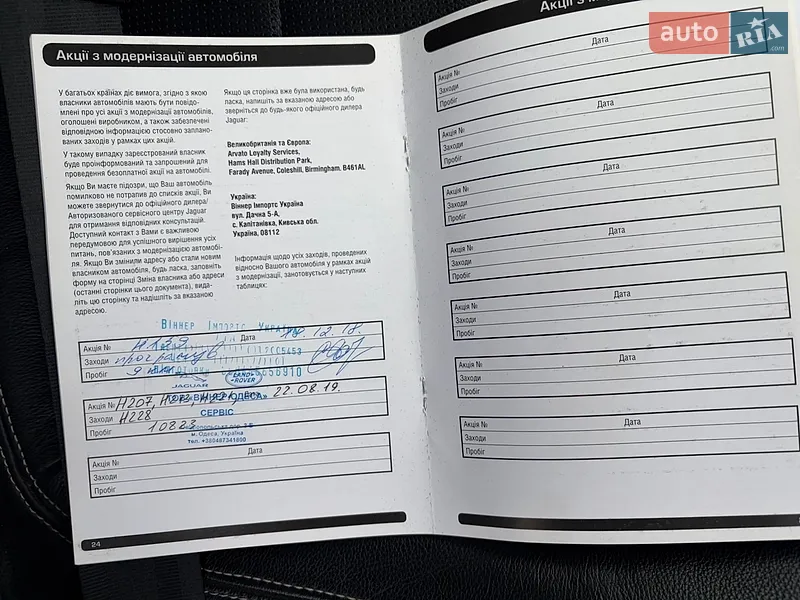 Акції з модернізації автомобіля
У багатьох країнах діє вимога, згідно з якою
власники автомобілів мають бути повідо-
млені про усі акції з модернізації автомобілів,
оголошені виробником, а також забезпечені
відповідною інформацією стосовно заплано-
ваних заходів у рамках цих акцій.
У такому випадку зареєстрований власник
буде проінформований та запрошений для
проведення безоплатної акції на автомобілі.
Якщо Ви маєте підозри, що Ваш автомобіль
помилково не потрапив до списків акції, Ви
можете звернутися до офіційного дилера/
Авторизованого сервісного центру Jaguar
для отримання відповідних консультацій.
Доступний контакт з Вами є важливою
передумовою для успішного вирішення усіх
питань, пов'язаних з модернізацією автомобі-
ля. Якщо Ви змінили адресу або стали новим
власником автомобіля, будь ласка, заповніть
форму на сторінці Зміна власника або адреси
(останні сторінки цього документа), вида-
літь цю сторінку та надішліть за вказаною
адресою.
Якщо ця сторінка вже була використана, будь
ласка, напишіть за вказаною адресою або
зверніться до будь-якого офіційного дилера
Jaguar:
Великобританія та Європа:
Arvato Loyalty Services,
Hams Hall Distribution Park,
Farady Avenue, Coleshill, Birmingham. B461AL
Україна:
Віннер Імпортс Україна
вул. Дачна 5-А,
с. Капітанівка, Киівська обл.
Україна, 08112
Інформація щодо усіх заходів, проведених
відносно Вашого автомобіля у рамках акцій
з модернізації, занотовується у наступних
таблицях:
Віннер Імпортс Україна
Акція № H139 Дата 18.12.18.
Заходи
Пробіг
JAGUAR LAND ROVER
Акція № H207, 22.08.19.
Заходи H228
Пробіг 10223
СЕРВІС
м. Одеса, Україна
тел. +380487341600
Акція № Дата
Заходи
Пробіг
24
Акції з
Акція № Дата
Заходи
Пробіг
Акція № Дата
Заходи
Пробіг
Акція № Дата
Заходи
Пробіг
Акція № Дата
Заходи
Пробіг
Акція № Дата
Заходи
Пробіг
Акція № Дата
Заходи
Пробіг
Акція № Дата
Заходи
Пробіг
auto RIA .com